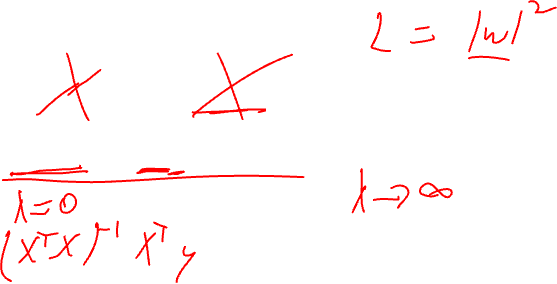 L = |w|²
λ=0
λ→∞
(XᵀX)⁻¹ Xᵀy